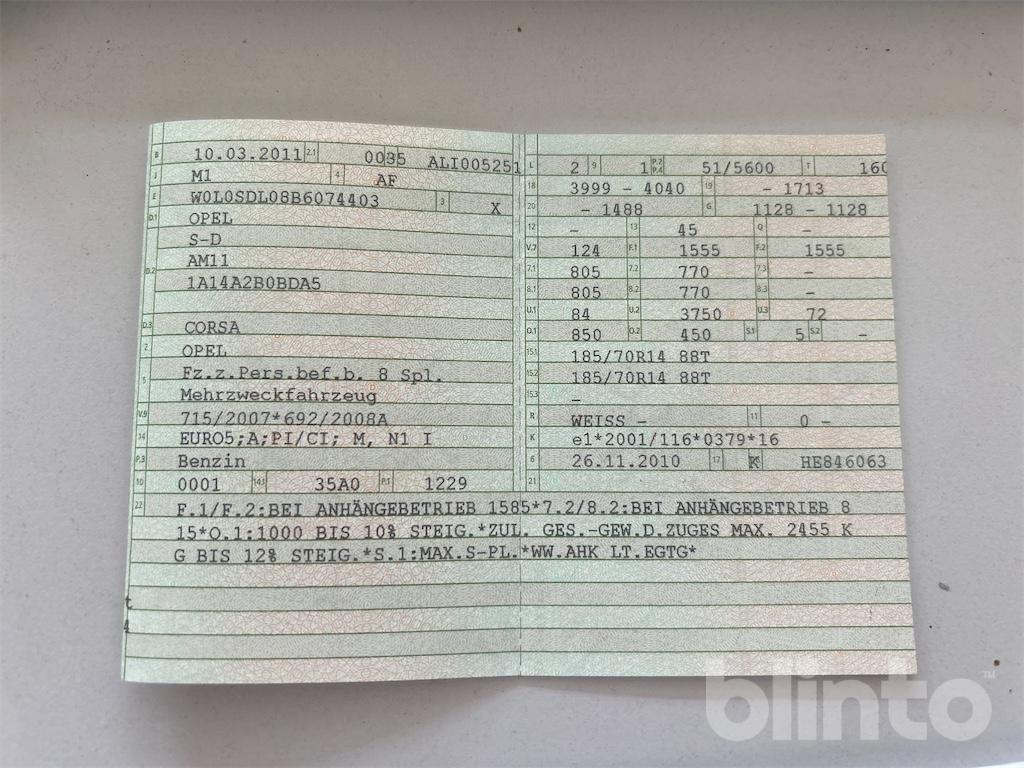 B 10.03.2011 2.1 0035 ALI005251
J M1 4 AF
E W0L0SDL08B6074403 3 X
D.1 OPEL
S-D
D.2 AM11
1A14A2B0BDA5
D.3 CORSA
2 OPEL
5 Fz.z.Pers.bef.b. 8 Spl.
Mehrzweckfahrzeug
V.9 715/2007*692/2008A
14 EURO5;A;PI/CI; M, N1 I
P.3 Benzin
10 0001 14.1 35A0 P.1 1229
L 2 9 1 P.2 P.4 51/5600 T 160
18 3999 - 4040 19 - 1713
20 - 1488 G 1128 - 1128
12 - 13 45 Q -
V.7 124 F.1 1555 F.2 1555
7.1 805 7.2 770 7.3 -
8.1 805 8.2 770 8.3 -
U.1 84 U.2 3750 U.3 72
O.1 850 O.2 450 S.1 5 S.2 -
15.1 185/70R14 88T
15.2 185/70R14 88T
15.3 -
R WEISS - 11 0 -
K e1*2001/116*0379*16
6 26.11.2010 17 K HE846063
21
22 F.1/F.2:BEI ANHÄNGEBETRIEB 1585*7.2/8.2:BEI ANHÄNGEBETRIEB 8
15*O.1:1000 BIS 10% STEIG.*ZUL. GES.-GEW.D.ZUGES MAX. 2455 K
G BIS 12% STEIG.*S.1:MAX.S-PL.*WW.AHK LT.EGTG*
blinto™